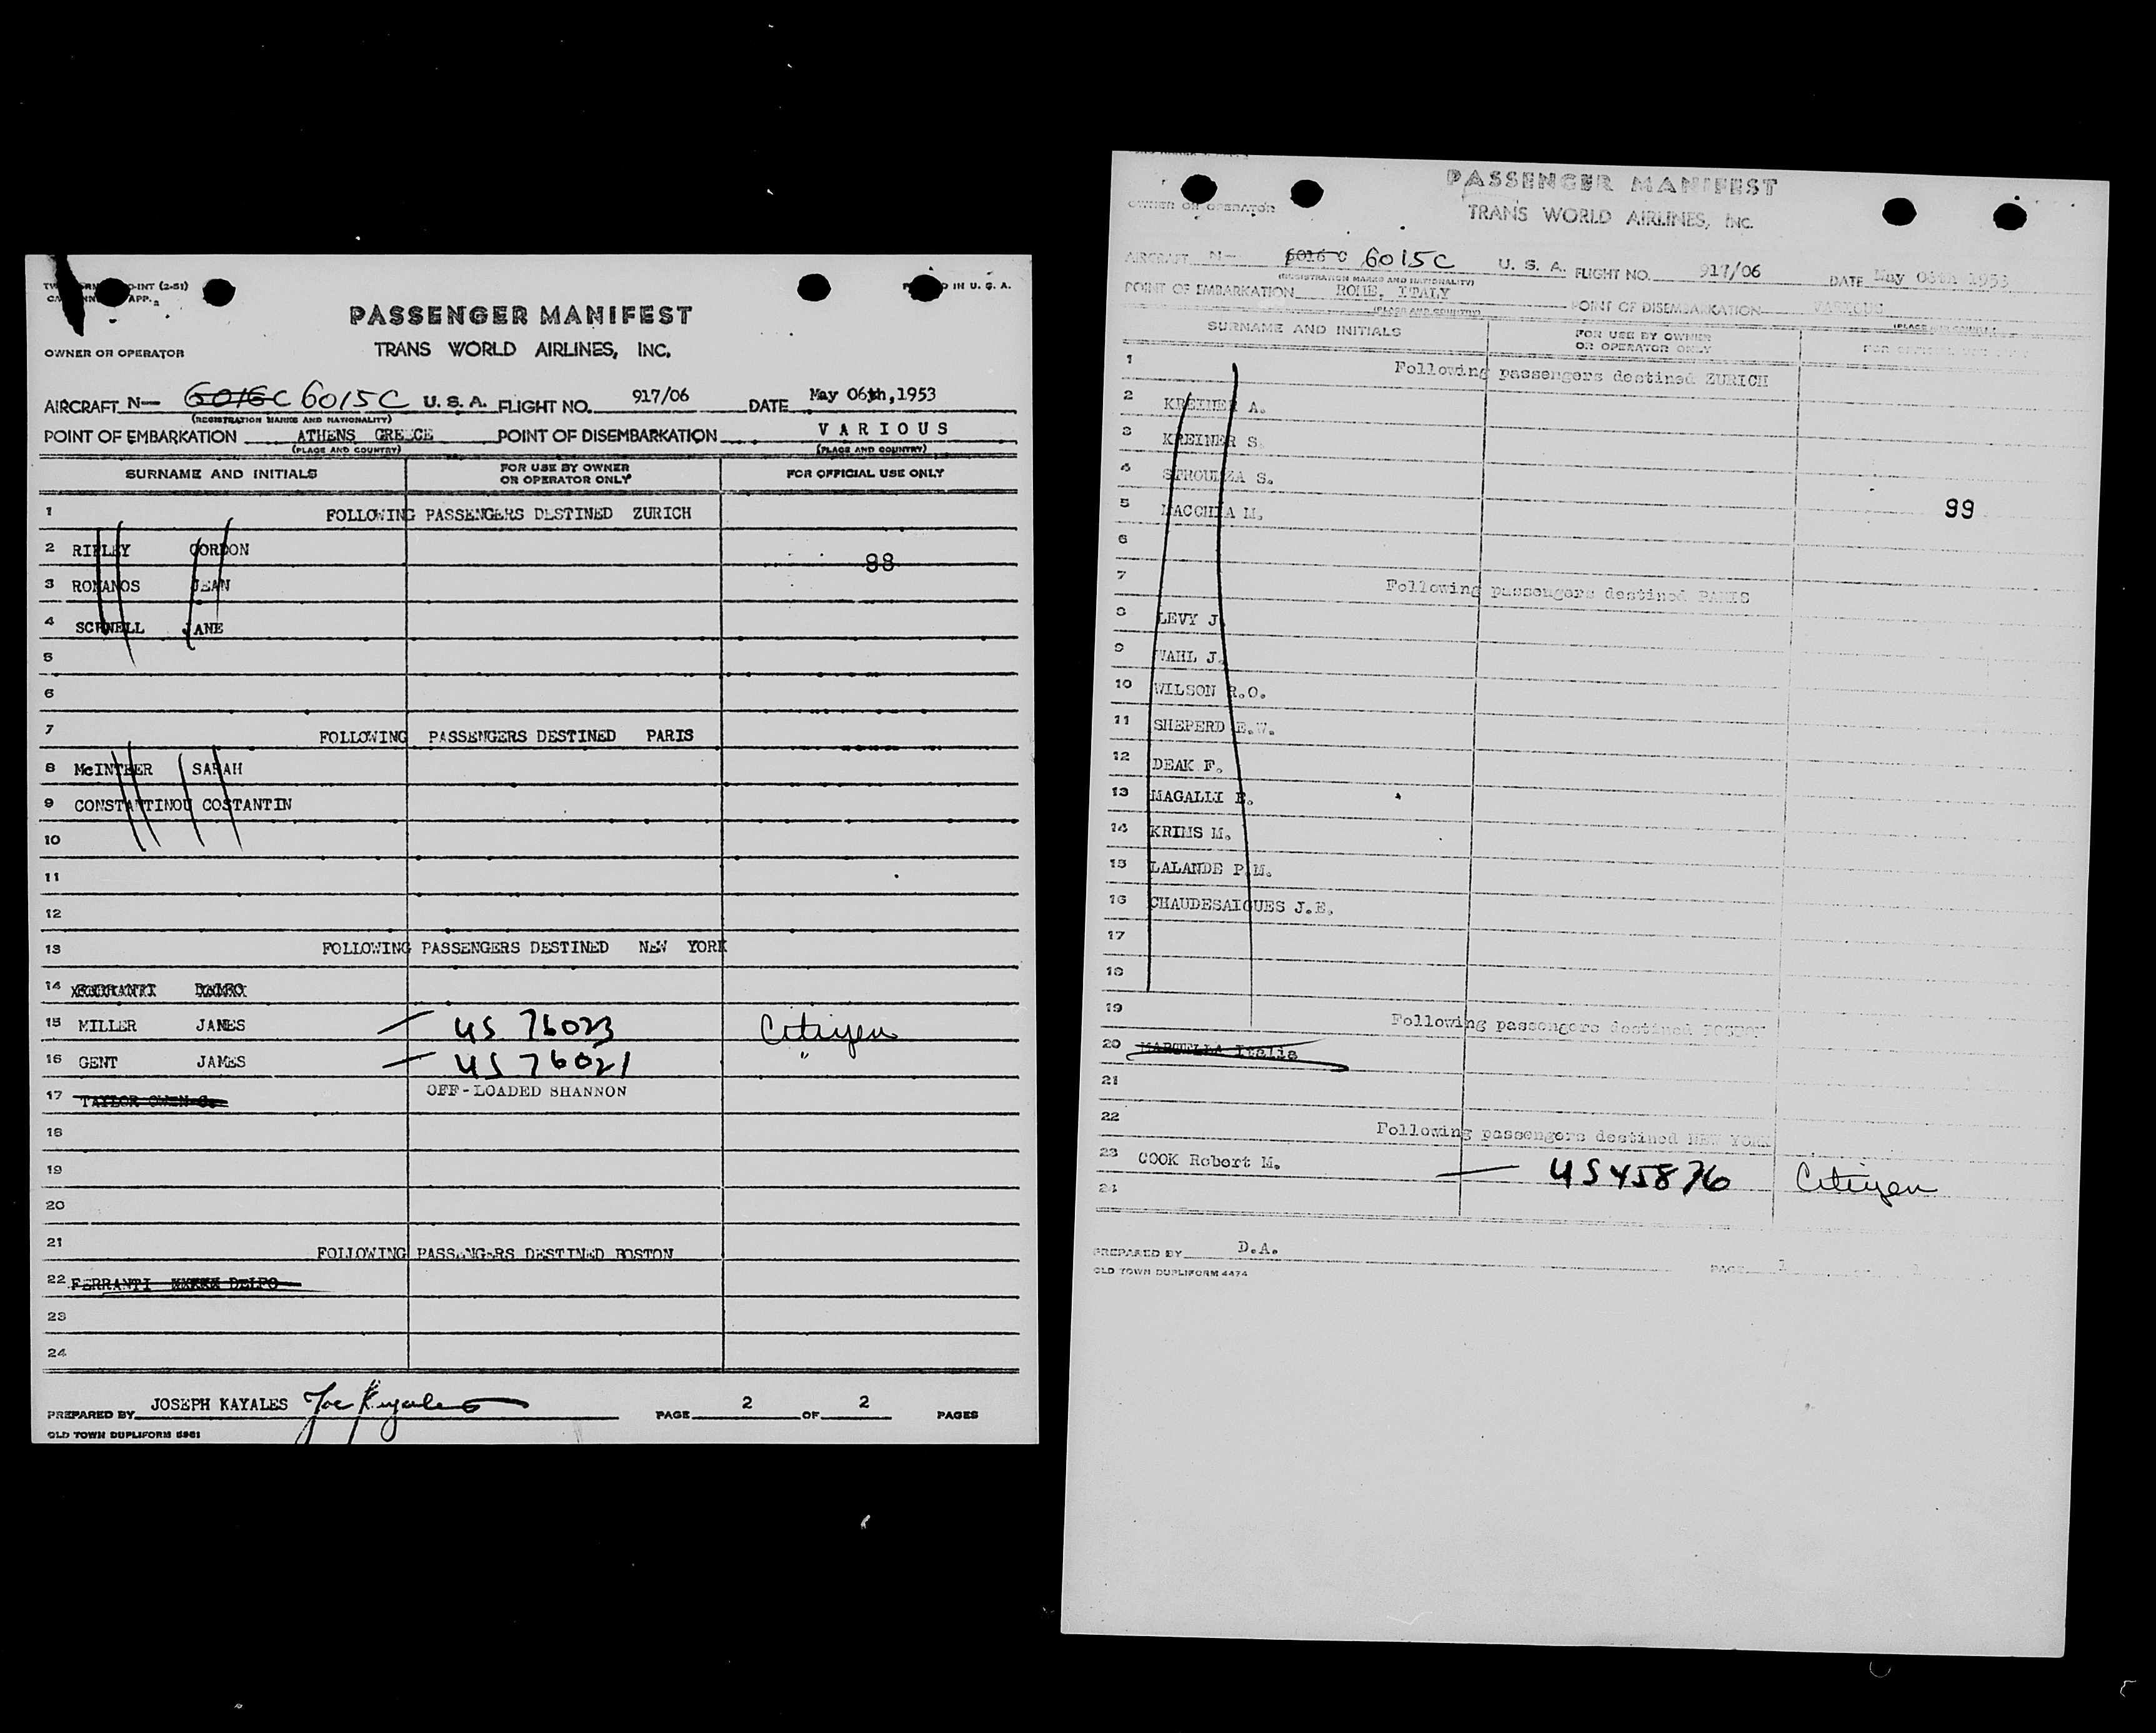 PRINTED IN U. S. A.
PASSENGER MANIFEST
OWNER OR OPERATOR
TRANS WORLD AIRLINES, INC.
AIRCRAFT N— 6016C 6015C U. S. A. FLIGHT NO. 917/06 DATE May 06th,1953
(REGISTRATION MARKS AND NATIONALITY)
POINT OF EMBARKATION ATHENS GREECE POINT OF DISEMBARKATION VARIOUS
(PLACE AND COUNTRY) (PLACE AND COUNTRY)
SURNAME AND INITIALS FOR USE BY OWNER OR OPERATOR ONLY FOR OFFICIAL USE ONLY
1 FOLLOWING PASSENGERS DESTINED ZURICH
2 RIPLEY GORDON
98
3 ROMANOS JEAN
4 SCHNELL JANE
5
6
7 FOLLOWING PASSENGERS DESTINED PARIS
8 McINTHER SARAH
9 CONSTANTINOU COSTANTIN
10
11
12
13 FOLLOWING PASSENGERS DESTINED NEW YORK
14 FERRANTI
15 MILLER JAMES — US 76023 Citizen
16 GENT JAMES — US 76021 "
17 TAYLOR OWEN OFF-LOADED SHANNON
18
19
20
21 FOLLOWING PASSENGERS DESTINED BOSTON
22 FERRANTI XXXXX DELFO
23
24
PREPARED BY JOSEPH KAYALES Joe Kayales PAGE 2 OF 2 PAGES
OLD TOWN DUPLIFORM
PASSENGER MANIFEST
OWNER OR OPERATOR
TRANS WORLD AIRLINES, INC.
AIRCRAFT N— 6016 C 6015C U. S. A. FLIGHT NO. 917/06 DATE May 06th 1953
(REGISTRATION MARKS AND NATIONALITY)
POINT OF EMBARKATION ROME, ITALY POINT OF DISEMBARKATION VARIOUS
(PLACE AND COUNTRY) (PLACE AND COUNTRY)
SURNAME AND INITIALS FOR USE BY OWNER OR OPERATOR ONLY FOR OFFICIAL USE ONLY
1 Following passengers destined ZURICH
2 KREINER A.
3 KREINER S.
4 STROUDZA S.
5 MACCHIA M. 99
6
7 Following passengers destined PARIS
8 LEVY J.
9 WAHL J.
10 WILSON R.O.
11 SHEPERD E.W.
12 DEAK F.
13 MAGALLI E.
14 KRIMS M.
15 LALANDE P.M.
16 CHAUDESAIGUES J.E.
17
18
19 Following passengers destined BOSTON
20 MARTELLA Italia
21
22 Following passengers destined NEW YORK
23 COOK Robert M. — US45876 Citizen
24
PREPARED BY D.A. PAGE 1
OLD TOWN DUPLIFORM 4474